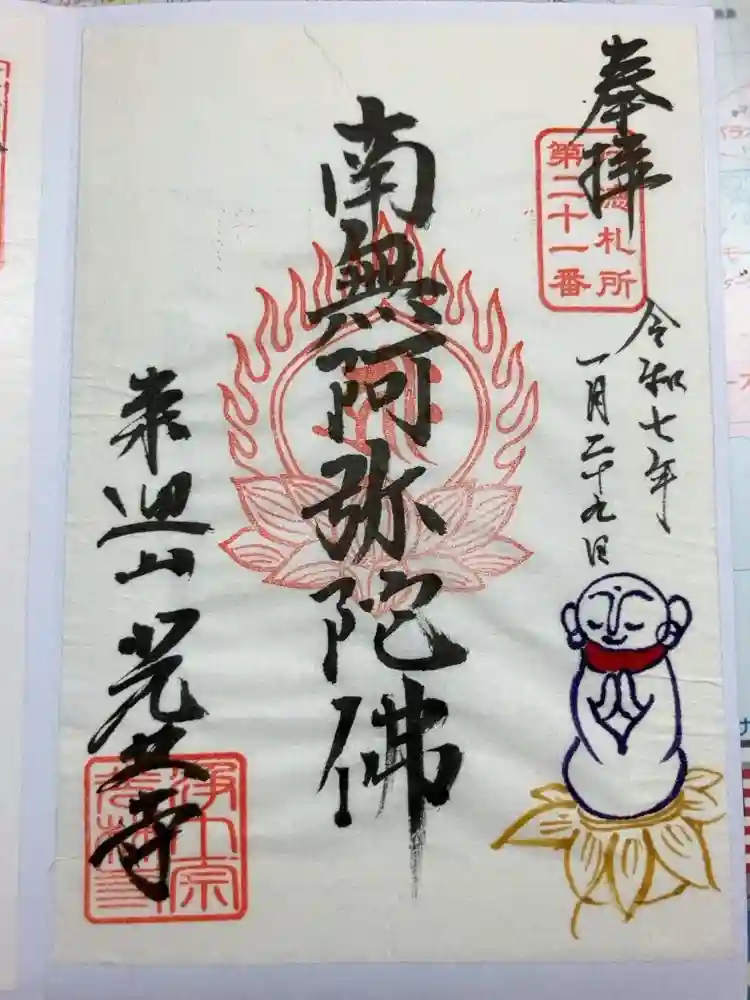 奉拝
札所
第二十一番
令和七年
一月二十九日
南無阿弥陀佛
来迎山
寺
浄土宗